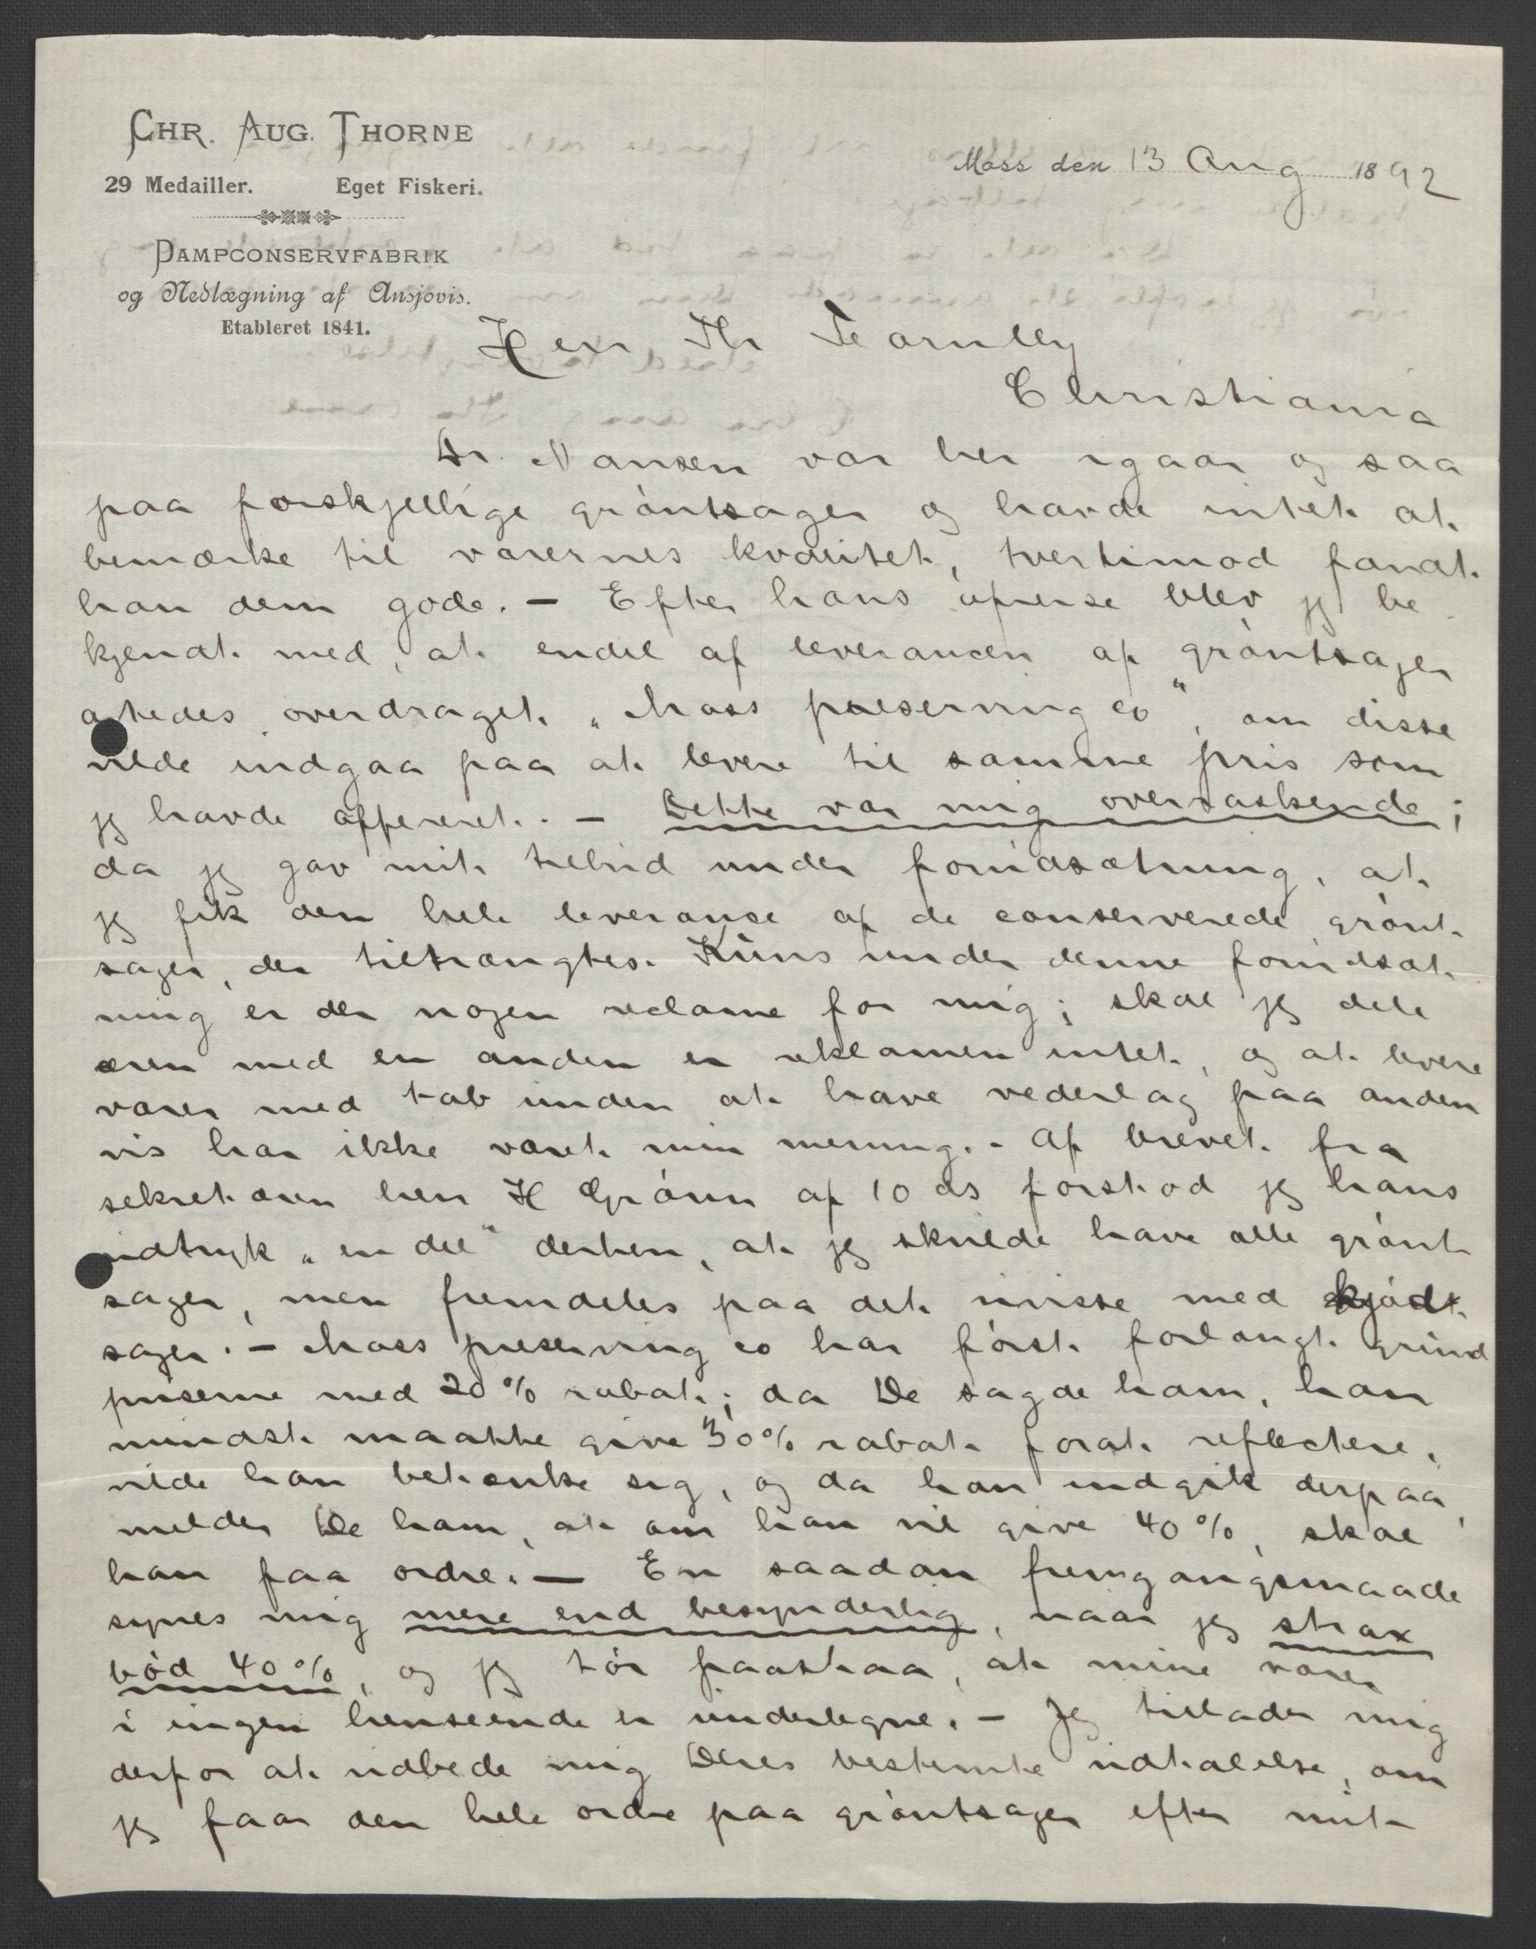 CHR. AUG. THORNE
29 Medailler. Eget Fiskeri.
DAMPCONSERVFABRIK
og Nedlægning af Ansjovis.
Etableret 1841.
Moss den 13 Aug 1892
Herr Th Fearnley
Christiania
Dr. Nansen var her igaar og saa
paa forskjellige grøntsager og havde intet at
bemærke til varernes kvalitet, tvertimod fandt
han dem gode. – Efter hans afreise blev jeg be
kjendt med, at endel af leverancen af grøntsager
agtedes overdraget „Moss preserving co", om disse
vilde indgaa paa at levere til samme pris som
jeg havde offereret. – Dette var mig overraskende;
da jeg gav mit tilbud under forudsætning, at
jeg fik den hele leverance af de conserverede grønt
sager, der tiltrængtes. Kuns under denne forudsæt
ning er der nogen reclame for mig; skal jeg dele
æren med en anden er reklamen intet, og at levere
varer med tab uden at have vederlag paa anden
vis har ikke været min mening. – Af brevet fra
sekretæren herr H Grønn af 10 ds forstod jeg hans
udtryk „en del" derhen, at jeg skulde have alle grønt
sager, men fremdeles paa det uvisse med kjødt
sager. – Moss preserving co har først forlangt grund
priserne med 20% rabat; da De sagde ham, han
mindst maatte give 30% rabat forat reflectere,
vilde han betænke sig, og da han indgik derpaa,
melder De ham, at om han vil give 40%, skal
han faa ordre. – En saadan fremgangsmaade
synes mig mere end besynderlig, naar jeg strax
bød 40%, og jeg tør paastaa, at mine varer
i ingen henseende er underlegne. – Jeg tillader mig
derfor at udbede mig Deres bestemte udtalelse, om
jeg faar den hele ordre paa grøntsager efter mit